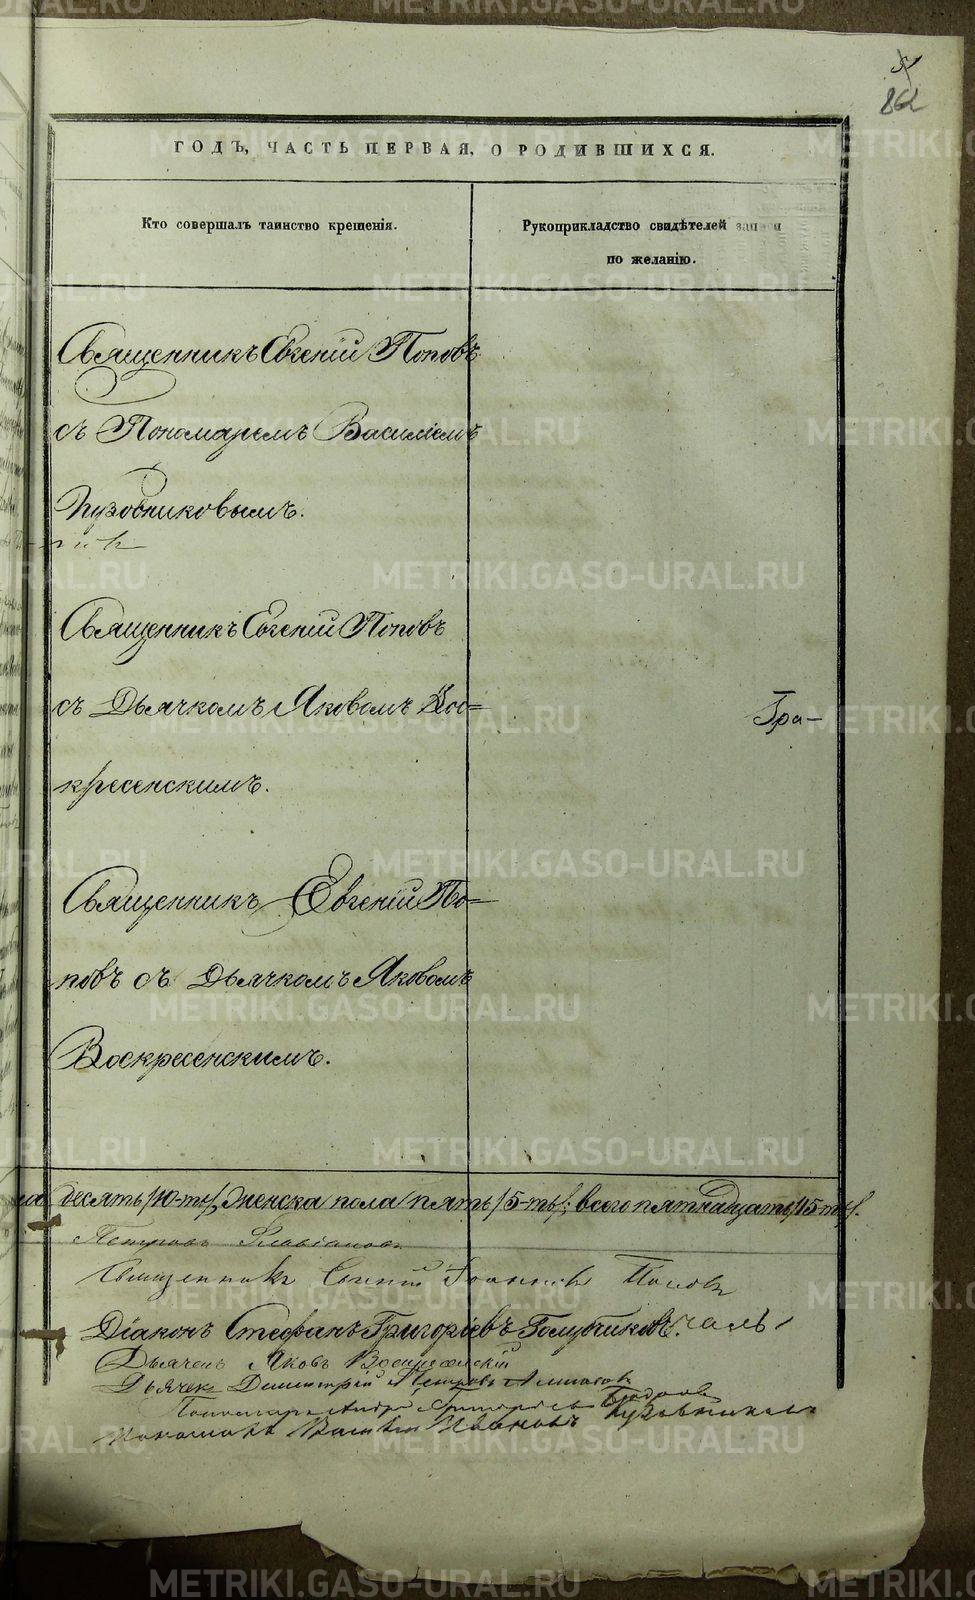 862
ГОДЪ, ЧАСТЬ ПЕРВАЯ, О РОДИВШИХСЯ.
Кто совершалъ таинство крещенія.
Рукоприкладство свидѣтелей записи
по желанію.
Священникъ Евгеній Поповъ
съ Пономаремъ Василіемъ
Пузовниковымъ.
Священникъ Евгеній Поповъ
съ Дьячкомъ Яковомъ Вос=
кресенскимъ.
Гра-
Священникъ Евгеній По=
повъ съ Дьячкомъ Яковомъ
Воскресенскимъ.
десять/10-ть/, женска пола пять/5-ть/; всего пятнадцать/15-ть/.
Петровъ
Священникъ Евгеній Іоанновъ Поповъ
Діаконъ Стефанъ Григоріевъ Голубчиковъ.
Дьячекъ Яковъ Воскресенскій
Дьячекъ Димитрій Петровъ
Пономарь Григорьевъ
Пономарь Василій Ивановъ Пузовниковъ
METRIKI.GASO-URAL.RU